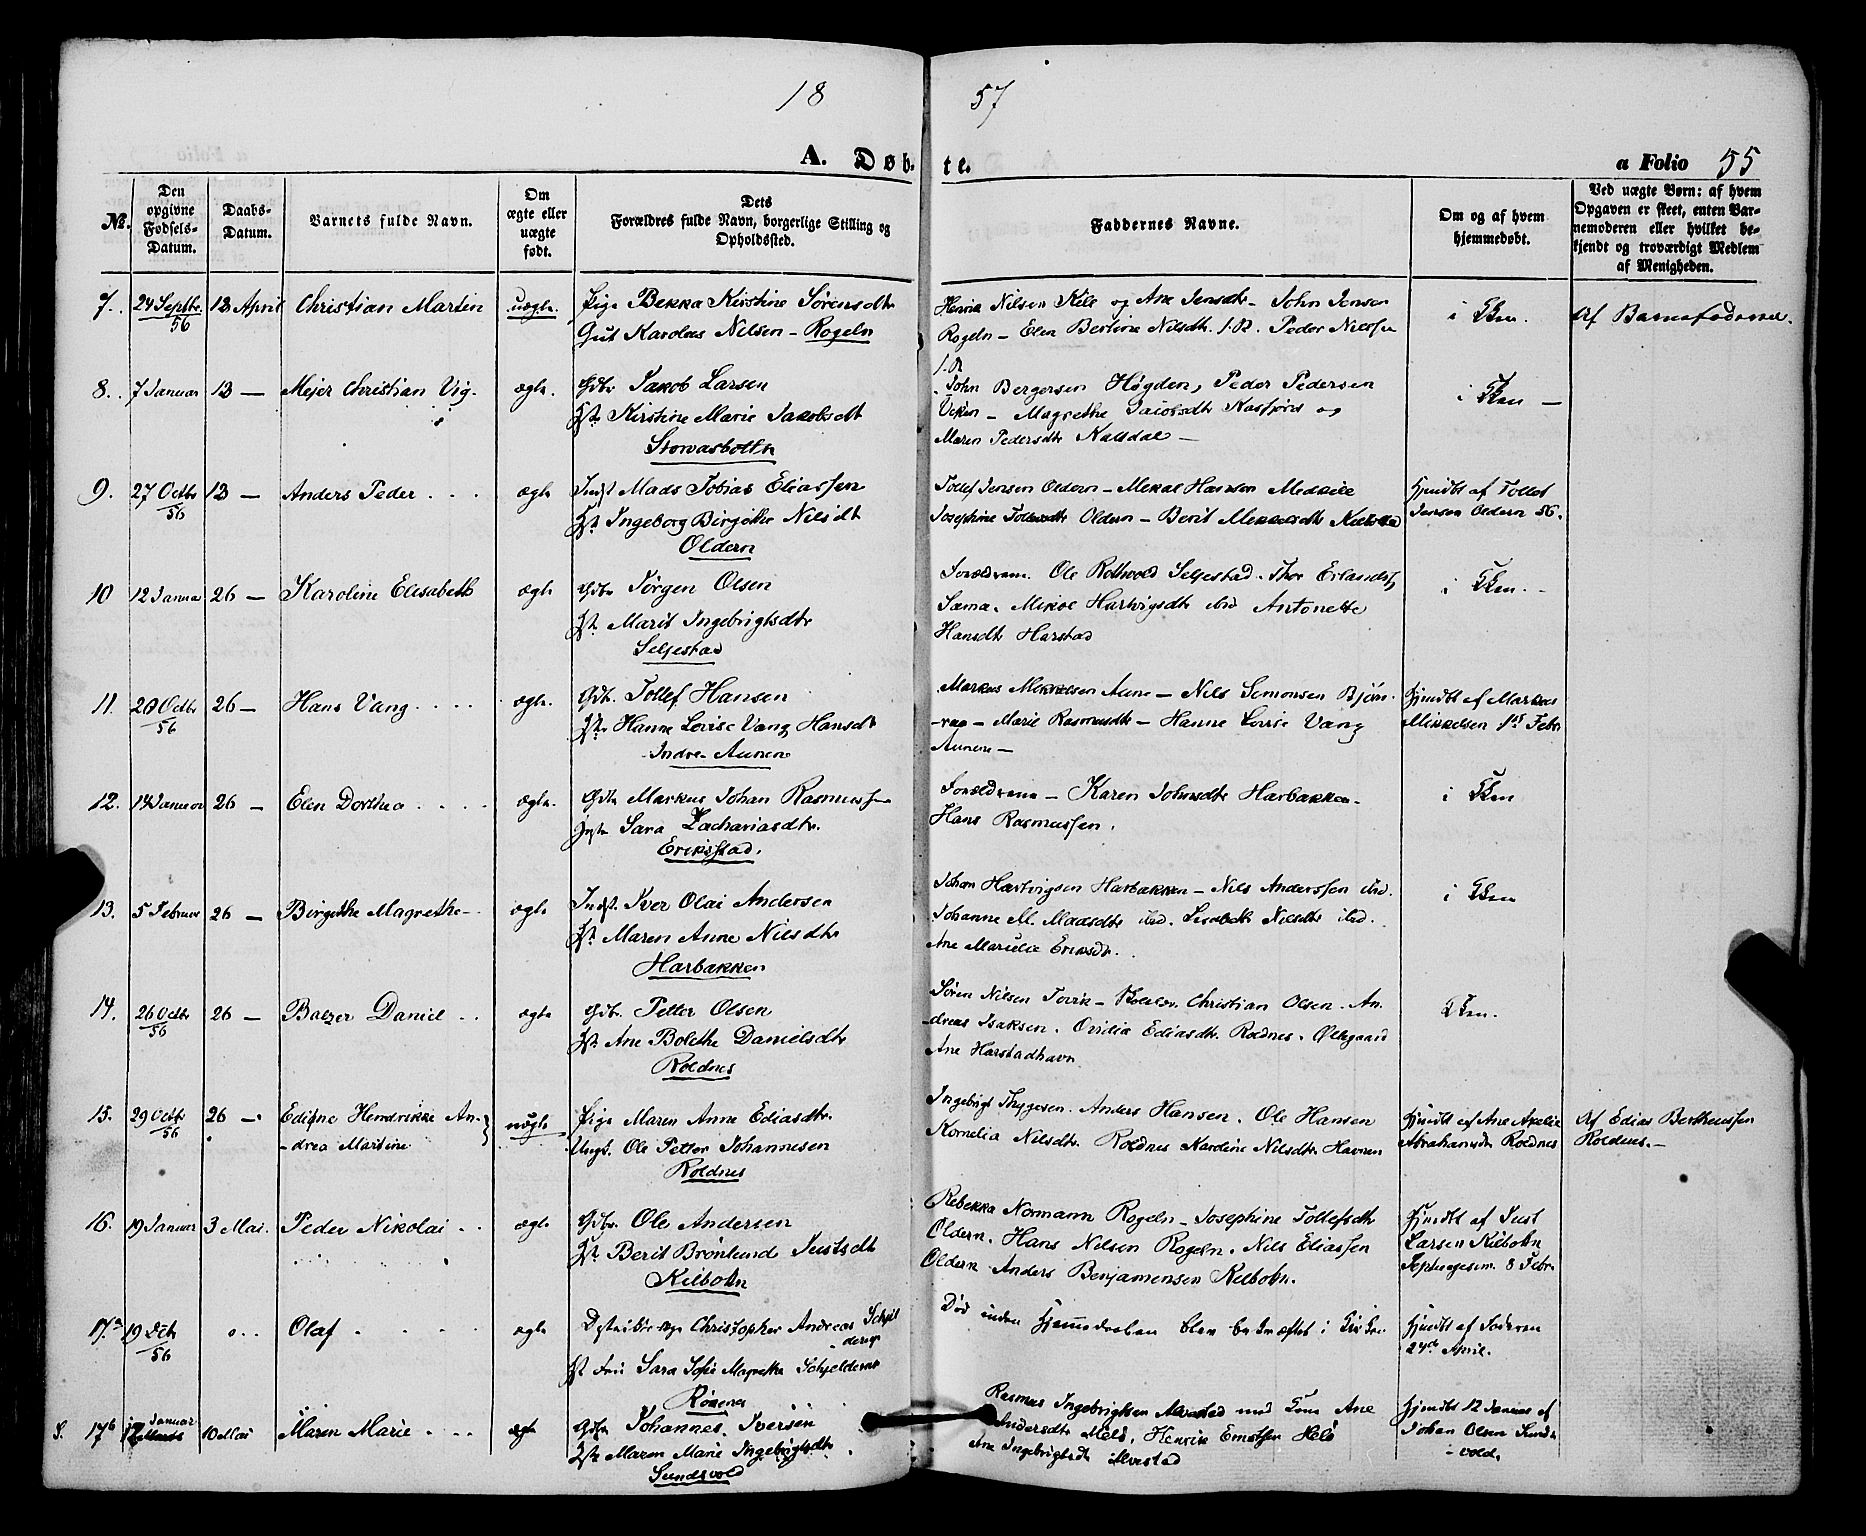 18 57
A. Døbte. a Folio 55
№.
Den opgivne Fødsels-Datum.
Daabs-Datum.
Barnets fulde Navn.
Om ægte eller uægte født.
Dets Forældres fulde Navn, borgerlige Stilling og Opholdssted.
Faddernes Navne.
Om og af hvem hjemmedøbt.
Ved uægte Børn: af hvem
Opgaven er skeet, enten Bar-
nemoderen eller hvilket be-
kjendt og troværdigt Medlem
af Menigheden.
7. 24 Septbr. 56 13 April Christian Martin uægte. Pige Bekka Kirstine Sørensdtr
Gut Karolus Nilsen - Rogeln
Henrik Nilsen Kile og Ane Jensdtr - John Jensen
Rogeln - Elen Bertine Nilsdtr. S.St. Peder Nielsen
S.St.
i Kken. Af Barnefaderen.
8. 7 Januar 13 — Mejer Christian Vig. ægte. Gdbr Jakob Larsen
Hst. Kirstine Marie Jakobsdt
Storvasbotten
John Bergersen Høgden, Peder Pedersen
Viken - Magrethe Jacobsdtr Kasfjord og
Maren Pedersdtr Kalsdal —
i Kken —
9. 27 Octbr 56 13 — Anders Peder ægte Indst Mads Tobias Eliassen
Hst. Ingeborg Birgithe Nilsdt
Oldern
Tollef Jensen Oldern - Mekal Hansen Medkile
Josephine Tollevsdtr Oldern - Berit Mekkelsdtr
Hjmdbt af Tollef
Jensen Oldern 56.
10 12 Januar 26 — Karoline Elisabeth ægte Gdbr Jørgen Olsen
Hst. Marit Ingebrigtsdtr
Seljestad
Forældrene. Ole Rothvold Seljestad. Thor Erlandsen
Sama. Mikal Hartvigsdtr ibd Antonette
Hansdtr Harstad
i Kken.
11. 28 Octbr 56 26 — Hans Vang ægte. Gdbr. Tollef Hansen
Hst. Hanne Lovise Vang Hansdt
Indre-Aunen
Markus Mikkelsen Aune - Nils Simonsen Bjørn-
-raa - Marie Rasmusdtr - Hanne Lovise Vang
Aunen —
Hjmdbt af Markus
Mikkelsen 1st Febr
12. 14 Januar 26 — Elen Dorthea ægte. Gdbr Markus Johan Rasmussen
Hst Sara Zachariasdtr.
Erikstad.
Forældrene - Karen Johnsdtr Harbakken -
Hans Rasmussen.
i Kken
13. 5 Februar 26 — Birgithe Magrethe - ægte Indst. Iver Olai Andersen
Hst. Maren Anne Nilsdtr
Harbakken
Johan Hartvigsen Harbakken - Nils Anderssen ibd.
Johanne M. Madsdtr ibd. Lisabeth Nilsdtr ibd.
Ane Marselie Eriksdtr.
i Kken
14. 26 Octbr 56 26 — Balzer Daniel ægte Gdbr. Petter Olsen
Hst. Ane Bolethe Danielsdtr
Roldnes
Søren Nilsen Tovik - Christian Olsen. An-
-dreas Isaksen. Ovidia Ediasdtr. Roldnes.
Ane Harstadhavn
Kken.
15. 29 Octbr 56 26 — Edigne Hendrikke An-
-drea Martine uægte Pige Maren Anne Ediasdtr.
Ungk. Ole Petter Johannesen
Roldnes
Ingebrigt Thygesen. Anders Hansen. Ole Hansen
Kornelia Nilsdtr. Roldnes Nardine Nilsdtr Havnen
Hjmdbt af Ane Axelie
Abrahamsdtr Roldnes
Af Edias Bertheussen
Roldnes. —
16. 19 Januar 3 Mai. Peder Nikolai ægte Gdbr. Ole Andersen
Hst. Berit Brønlund Justsdt
Kilbotn
Rebekka Normann Rogeln - Josephine Tollefsdtr
Oldern. Hans Nilsen Rogeln. Nils Eliassen
Oldern Anders Benjamensen Kilbotn.
Hjmdbt af Just
Larsen Kilbotn
Septuagesim. 8 Febr.
17.a 19 Octbr 56 Olaf ægte Christopher Andreas Schjel
derup
Hst Fru Sara Sofie Magrethe Schjelderup
Røkenes
Død inden Hjemmedaaben blev bekræftet i Kirken
Hjmdbt af Faderen
24de April.
S. 17b 12 Januar 10 Mai Maren Marie ægte Gdbr Johannes Iversen
Hst. Maren Marie Ingebrigtsdtr.
Sundsvold
Rasmus Ingebrigtsen Alvestad med Kone Ane
Andersdtr Mels. Henrik Ernstsen Mels
Ane Ingebrigtsdt Alvestad
Hjmdbt 12 Januar af
Johan Olsen Sunds
vold.